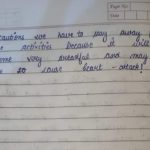 Page No.
Date
cautions we have to stay away f
e activities because it will
ome very stressful and may
e to cause heart-attack!